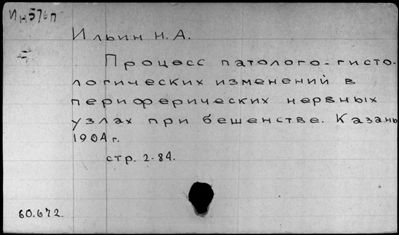 Ин576п
Ильин Н.А.
Процесс патолого-гисто-
логических изменений в
периферических нервных
узлах при бешенстве. Казань
1904 г.
стр. 2-84.
60.672.